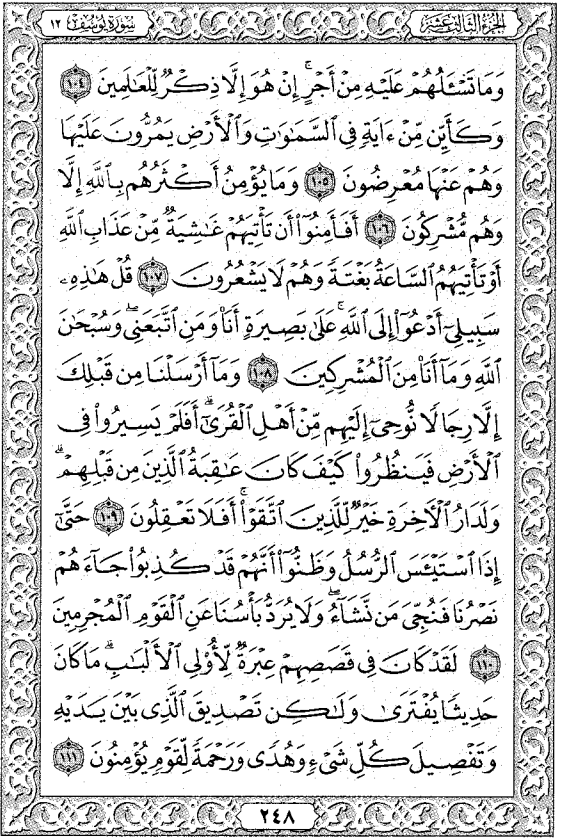 الجزء الثالث عشر
سورة يوسف ١٢
وَمَا تَسْـَٔلُهُمْ عَلَيْهِ مِنْ أَجْرٍ ۚ إِنْ هُوَ إِلَّا ذِكْرٌ لِّلْعَـٰلَمِينَ ١٠٤
وَكَأَيِّن مِّنْ ءَايَةٍ فِى ٱلسَّمَـٰوَٰتِ وَٱلْأَرْضِ يَمُرُّونَ عَلَيْهَا
وَهُمْ عَنْهَا مُعْرِضُونَ ١٠٥ وَمَا يُؤْمِنُ أَكْثَرُهُم بِٱللَّهِ إِلَّا
وَهُم مُّشْرِكُونَ ١٠٦ أَفَأَمِنُوٓا۟ أَن تَأْتِيَهُمْ غَـٰشِيَةٌ مِّنْ عَذَابِ ٱللَّهِ
أَوْ تَأْتِيَهُمُ ٱلسَّاعَةُ بَغْتَةً وَهُمْ لَا يَشْعُرُونَ ١٠٧ قُلْ هَـٰذِهِۦ
سَبِيلِىٓ أَدْعُوٓا۟ إِلَى ٱللَّهِ ۚ عَلَىٰ بَصِيرَةٍ أَنَا۠ وَمَنِ ٱتَّبَعَنِى ۖ وَسُبْحَـٰنَ
ٱللَّهِ وَمَآ أَنَا۠ مِنَ ٱلْمُشْرِكِينَ ١٠٨ وَمَآ أَرْسَلْنَا مِن قَبْلِكَ
إِلَّا رِجَالًا نُّوحِىٓ إِلَيْهِم مِّنْ أَهْلِ ٱلْقُرَىٰٓ ۗ أَفَلَمْ يَسِيرُوا۟ فِى
ٱلْأَرْضِ فَيَنظُرُوا۟ كَيْفَ كَانَ عَـٰقِبَةُ ٱلَّذِينَ مِن قَبْلِهِمْ ۗ
وَلَدَارُ ٱلْـَٔاخِرَةِ خَيْرٌ لِّلَّذِينَ ٱتَّقَوْا۟ ۗ أَفَلَا تَعْقِلُونَ ١٠٩ حَتَّىٰٓ
إِذَا ٱسْتَيْـَٔسَ ٱلرُّسُلُ وَظَنُّوٓا۟ أَنَّهُمْ قَدْ كُذِبُوا۟ جَآءَهُمْ
نَصْرُنَا فَنُجِّىَ مَن نَّشَآءُ ۖ وَلَا يُرَدُّ بَأْسُنَا عَنِ ٱلْقَوْمِ ٱلْمُجْرِمِينَ
١١٠ لَقَدْ كَانَ فِى قَصَصِهِمْ عِبْرَةٌ لِّأُو۟لِى ٱلْأَلْبَـٰبِ ۗ مَا كَانَ
حَدِيثًا يُفْتَرَىٰ وَلَـٰكِن تَصْدِيقَ ٱلَّذِى بَيْنَ يَدَيْهِ
وَتَفْصِيلَ كُلِّ شَىْءٍ وَهُدًى وَرَحْمَةً لِّقَوْمٍ يُؤْمِنُونَ ١١١
٢٤٨